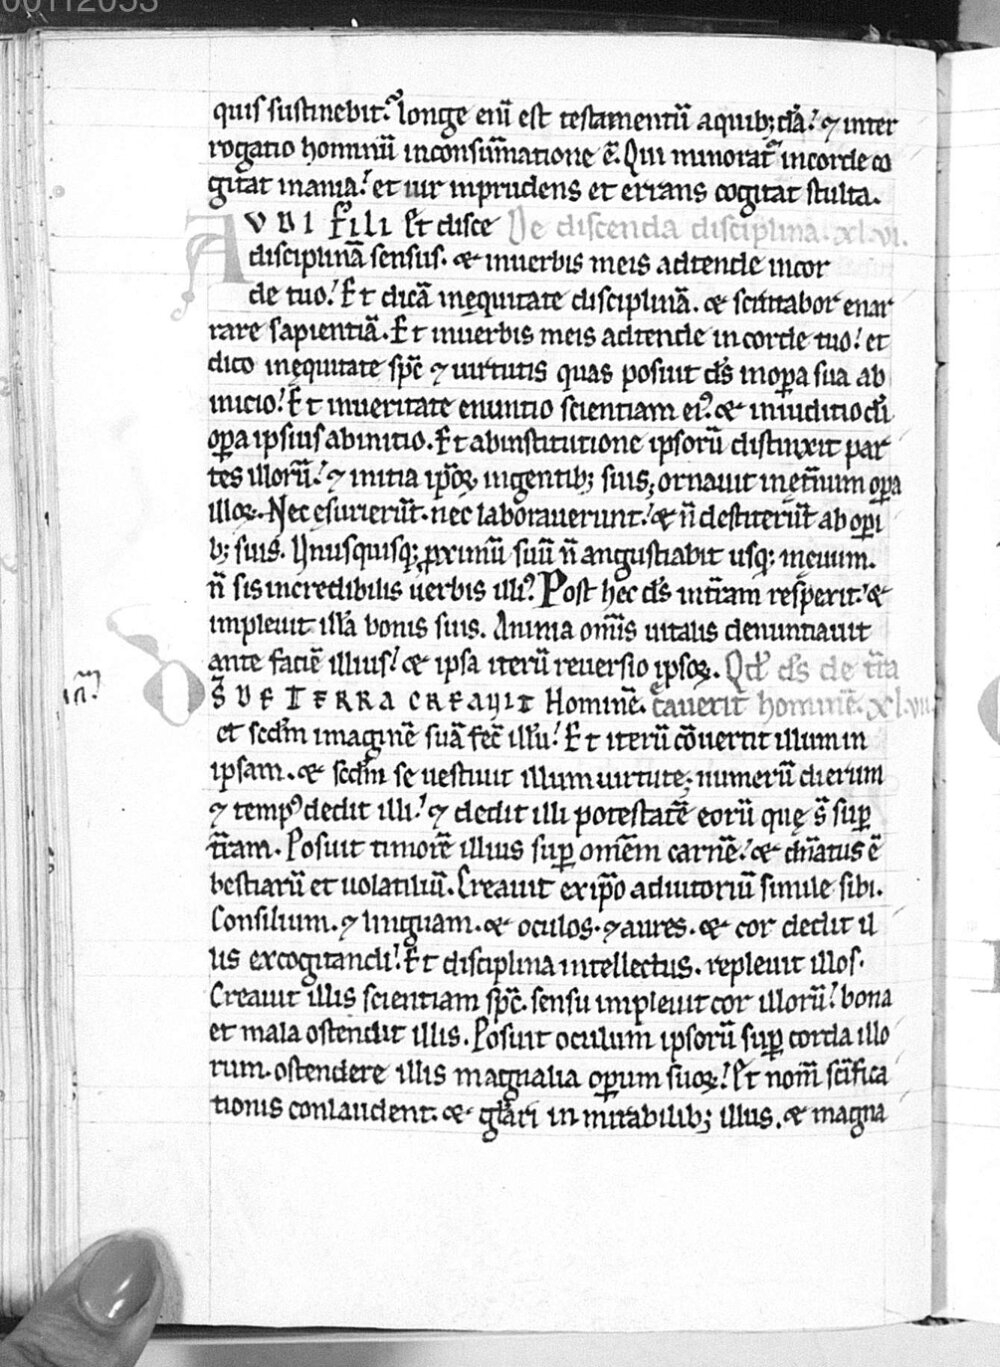 00112053
quis sustinebit.ˀ longe eni̅ est testamentu̅ a quib; da̅.ˀ ⁊ inter
rogatio hominu̅ in consum̅atione e̅. Qui minorat᷑ in corde co
gitat inania.ˀ et uir inprudens et errans cogitat stulta.
AVDI FILI Et disce De discenda disciplina. xl.vi.
disciplina̅ sensus. & in uerbis meis adtende in cor
de tuo.ˀ Et dica̅ in ęquitate disciplina̅. & scrutabor enar
rare sapientia̅. Et in uerbis meis adtende in corde tuo.ˀ et
dico in ęquitate sp̅c ⁊ uirtutis quas posuit d̅s in op̲a sua ab
inicio.ˀ Et in ueritate enuntio scientiam ei᷒. & in iuditio d̅i
op̲a ipsius ab initio. Et ab institutione ipsoru̅ distinxit par
tes illoru̅.ˀ ⁊ initia ip̅oꝝ in gentib; suis; ornauit in et̅num op̲a
illoꝝ. Nec esurieru̅t. nec laborauerunt.ˀ & n̅ destiteru̅t ab op̲i
b; suis. Vnusquisq; ꝓximu̅ suu̅ n̅ angustiabit usq; in ęuum.
n̅ sis incredibilis uerbis illi᷒. Post hec d̅s in t̅ram resp̲exit.ˀ &
impleuit illa̅ bonis suis. Anima om̅is uitalis denuntiauit
ante facie̅ illius.ˀ & ipsa iteru̅ reuersio ipsoꝝ. Qd̅ d̅s de t̅ra
D̅S DE TERRA CREAVIT Homine̅. c̅auerit homine̅. xl.vii
et scd̅m imagine̅ sua̅ fec̅ illu̅.ˀ Et iteru̅ co̅uertit illum in
ipsam. & scd̅m se uestiuit illum uirtute; numeru̅ dierum
⁊ temp᷒ dedit illi.ˀ ⁊ dedit illi potestate̅ eoru̅ quę s̅ sup̲
t̅ram. Posuit timore̅ illius sup̲ om̅em carne̅.ˀ & dn̅atus e̅
bestiaru̅ et uolatiliu̅. Creauit ex ip̅o adiutoriu̅ simile sibi.
Consilium. ⁊ linguam. & oculos. ⁊ aures. & cor dedit il
lis excogitandi.ˀ Et disciplina intellectus. repleuit illos.
Creauit illis scientiam sp̅c. sensu impleuit cor illoru̅.ˀ bona
et mala ostendit illis. Posuit oculum ipsoru̅ sup̲ corda illo
rum. ostendere illis magnalia op̲um suoꝝ.ˀ Et nom̅ sc̅ifica
tionis conlaudent. & gl̅ari in mirabilib; illius. & magna